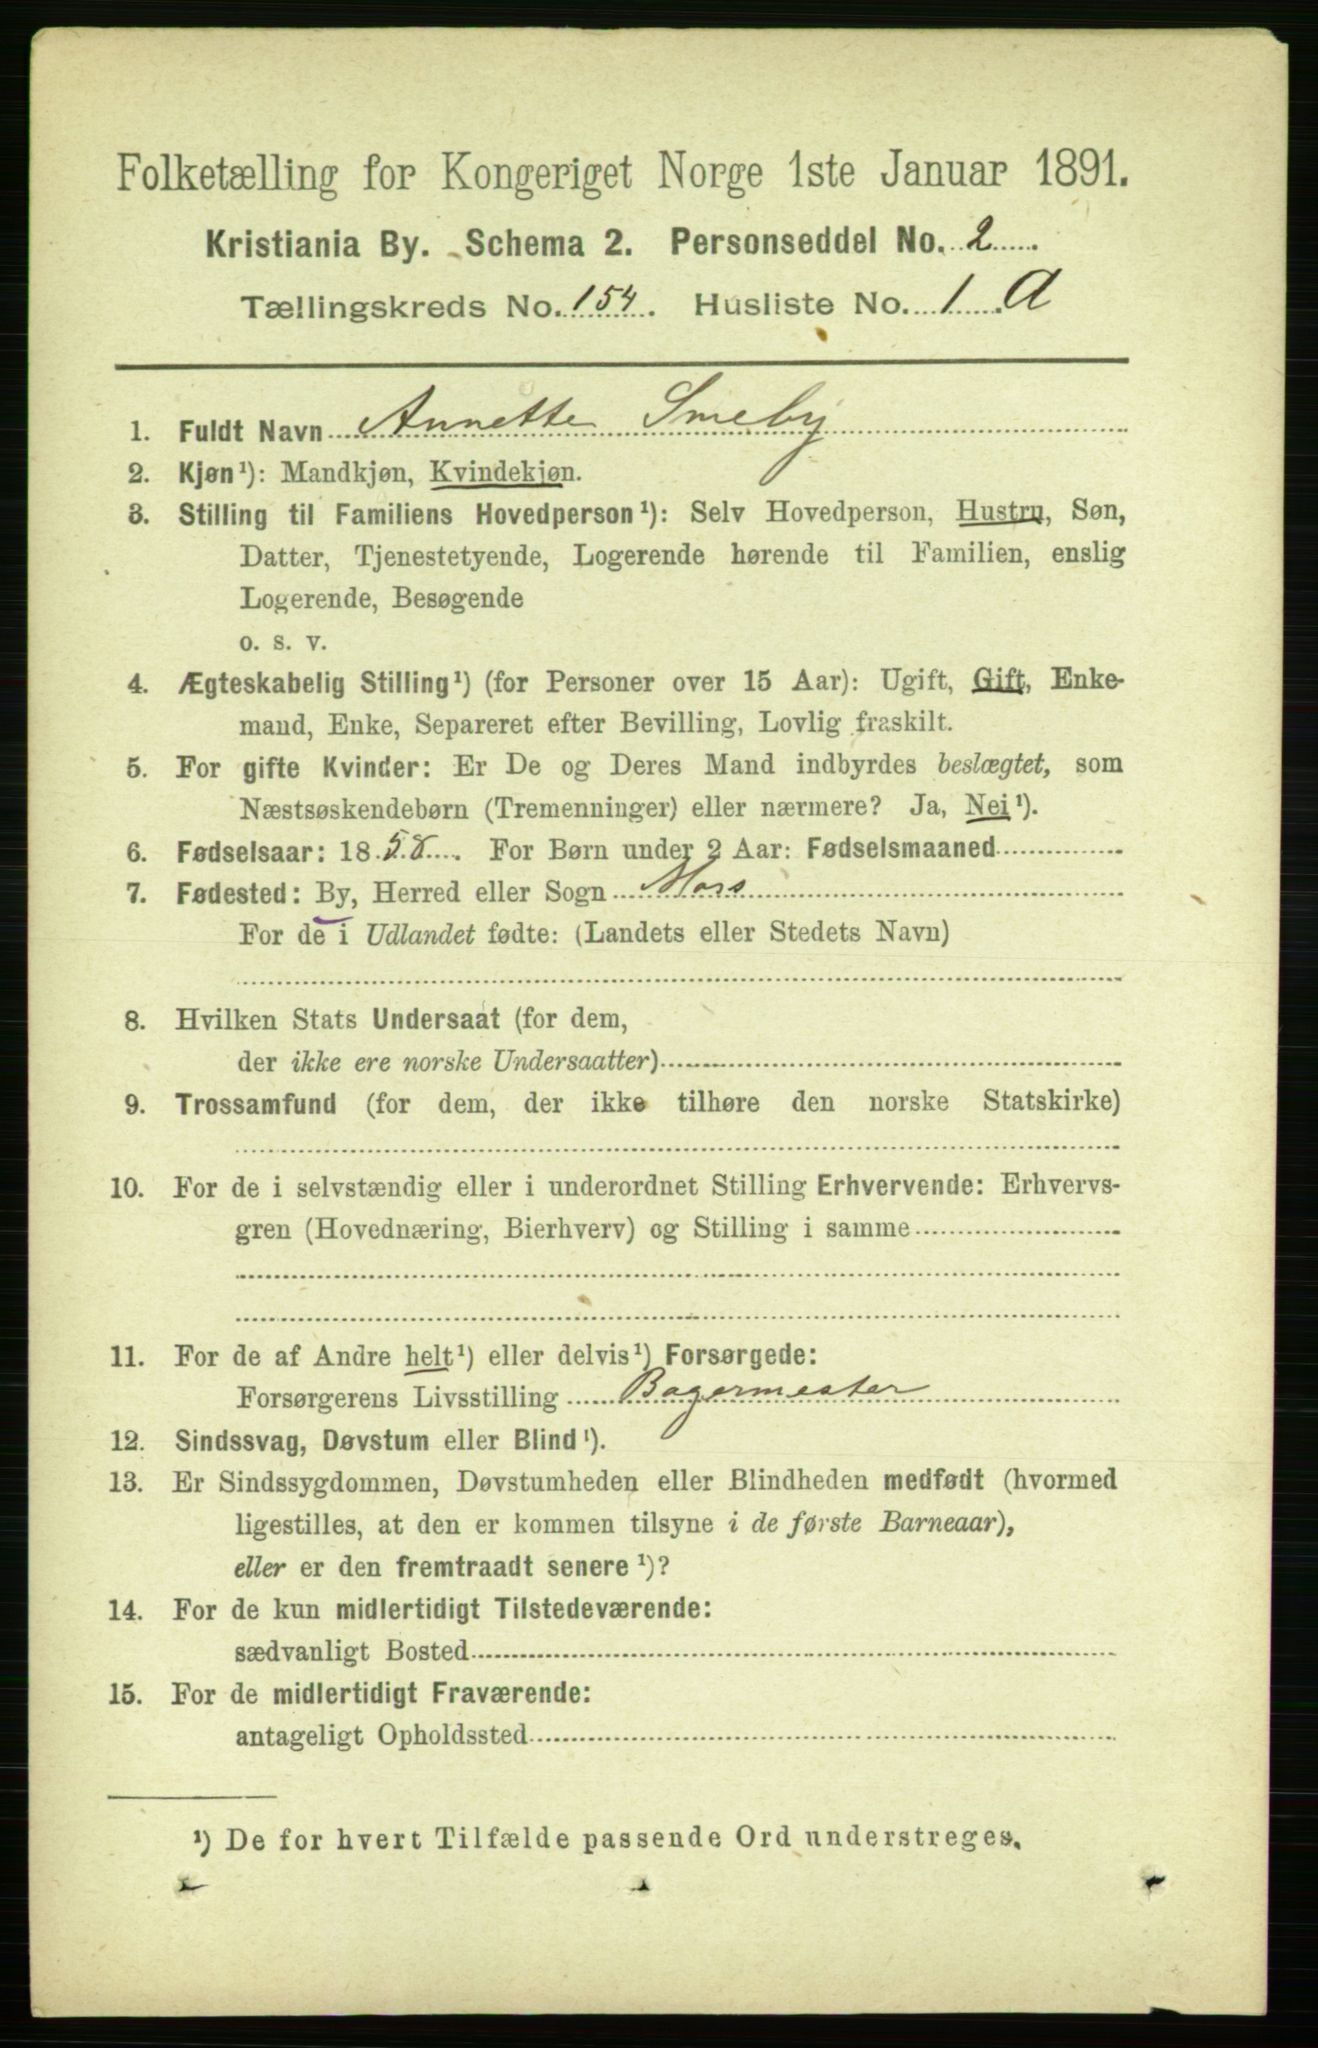 Folketælling for Kongeriget Norge 1ste Januar 1891.
Kristiania By. Schema 2. Personseddel No. 2
Tællingskreds No. 154. Husliste No. 1 A
1. Fuldt Navn Annette Smeby
2. Kjøn¹): Mandkjøn, Kvindekjøn.
3. Stilling til Familiens Hovedperson¹): Selv Hovedperson, Hustru, Søn,
Datter, Tjenestetyende, Logerende hørende til Familien, enslig
Logerende, Besøgende
o. s. v.
4. Ægteskabelig Stilling¹) (for Personer over 15 Aar): Ugift, Gift, Enke-
mand, Enke, Separeret efter Bevilling, Lovlig fraskilt.
5. For gifte Kvinder: Er De og Deres Mand indbyrdes beslægtet, som
Næstsøskendebørn (Tremenninger) eller nærmere? Ja, Nei¹).
6. Fødselsaar: 1858. For Børn under 2 Aar: Fødselsmaaned
7. Fødested: By, Herred eller Sogn Moss
For de i Udlandet fødte: (Landets eller Stedets Navn)
8. Hvilken Stats Undersaat (for dem,
der ikke ere norske Undersaatter)
9. Trossamfund (for dem, der ikke tilhøre den norske Statskirke)
10. For de i selvstændig eller i underordnet Stilling Erhvervende: Erhvervs-
gren (Hovednæring, Bierhverv) og Stilling i samme
11. For de af Andre helt¹) eller delvis¹) Forsørgede:
Forsørgerens Livsstilling Bagermester
12. Sindssvag, Døvstum eller Blind¹).
13. Er Sindssygdommen, Døvstumheden eller Blindheden medfødt (hvormed
ligestilles, at den er kommen tilsyne i de første Barneaar),
eller er den fremtraadt senere¹)?
14. For de kun midlertidigt Tilstedeværende:
sædvanligt Bosted
15. For de midlertidigt Fraværende:
antageligt Opholdssted
¹) De for hvert Tilfælde passende Ord understreges.